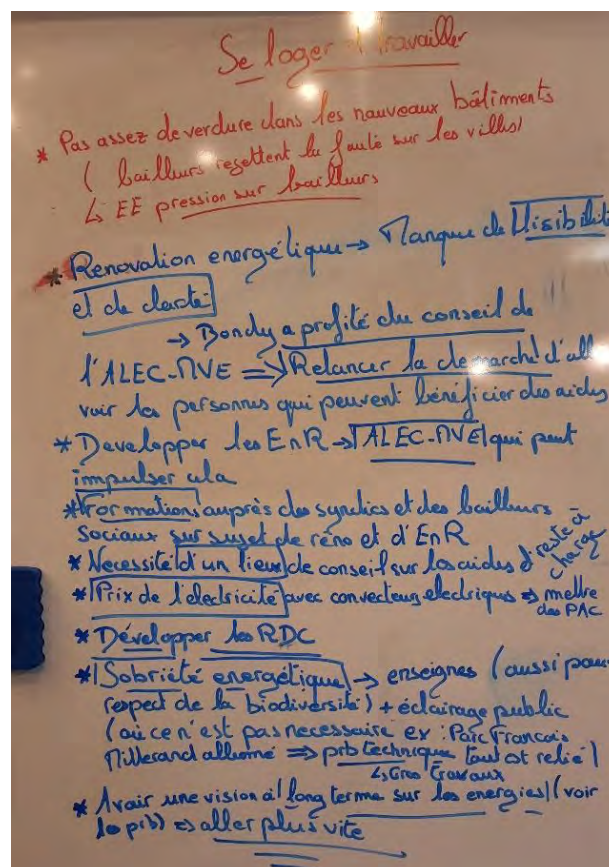 Se loger et travailler
* Pas assez de verdure dans les nouveaux bâtiments
( bailleurs rejettent la faute sur les villes)
↳ EE pression sur bailleurs
* Renovation energétique → Manque de lisibilité
et de clarté
→ Bondy a profité du conseil de
l'ALEC-MVE ⇒ Relancer la démarche d'aller
voir les personnes qui peuvent bénéficier des aides
* Developper les EnR → ALEC-MVE qui peut
impulser cela
* Formations auprès des syndics et des bailleurs
sociaux sur sujet de réno et d'EnR
* Necessité d'un lieu de conseil sur les aides reste à
charge
* Prix de l'électricité avec convecteurs electriques ⇒ mettre
des PAC
* Développer les RDC
* Sobriété energétique → enseignes (aussi pour
respect de la biodiversité) + éclairage public
(où ce n'est pas necessaire ex : Parc François
Mitterand allumé ⇒ prb technique tout est relié)
↳ Gros travaux
* Avoir une vision à long terme sur les energies (voir
les prb) ⇒ aller plus vite